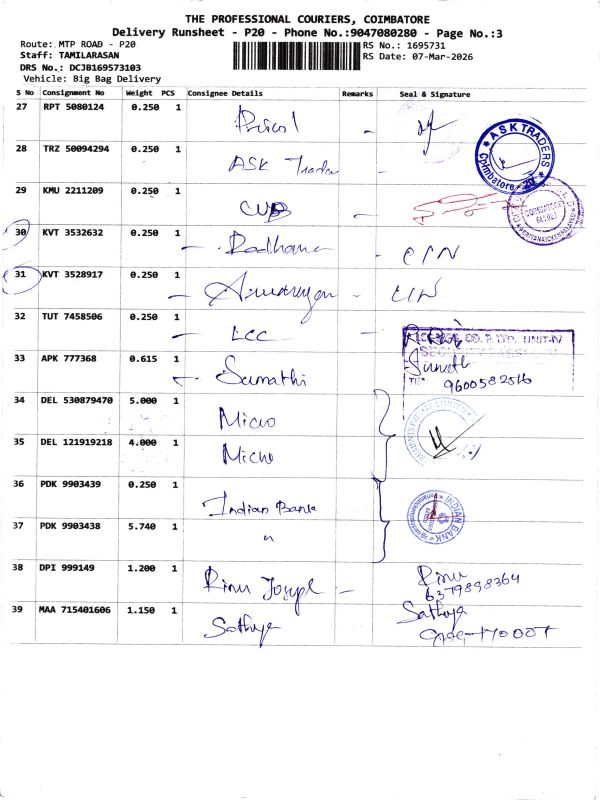 THE PROFESSIONAL COURIERS, COIMBATORE
Delivery Runsheet - P20 - Phone No.:9047080280 - Page No.:3
Route: MTP ROAD - P20
RS No.: 1695731
Staff: TAMILARASAN
RS Date: 07-Mar-2026
DRS No.: DCJB169573103
Vehicle: Big Bag Delivery
S No Consignment No Weight PCS Consignee Details Remarks Seal & Signature
27 RPT 5080124 0.250 1 Pricol
28 TRZ 50094294 0.250 1 ASK Trader
ASK TRADERS
Coimbatore - 29
29 KMU 2211209 0.250 1 CUB
30 KVT 3532632 0.250 1 Radhama
31 KVT 3528917 0.250 1
32 TUT 7458506 0.250 1 LCC
CO. P. LTD. UNIT-IV
33 APK 777368 0.615 1 Sumathi
Sumathi
9600582516
34 DEL 530879470 5.000 1 Micro
35 DEL 121919218 4.000 1 Micro
36 PDK 9903439 0.250 1 Indian Bank
INDIAN BANK
37 PDK 9903438 5.740 1 "
38 DPI 999149 1.200 1 Rinu Joseph - Rinu
6379898364
39 MAA 715401606 1.150 1 Sathya Sathya